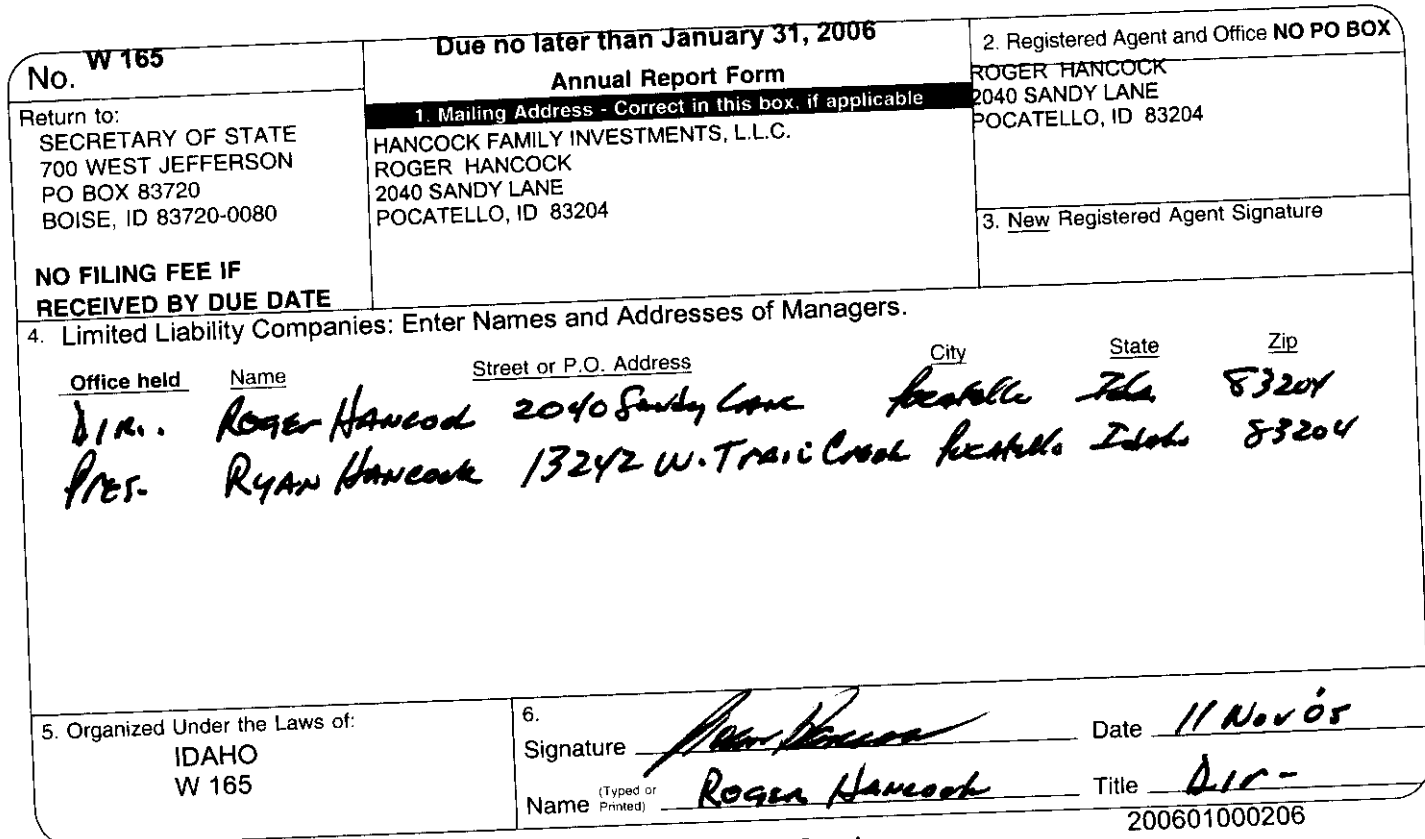 No. W 165
Return to:
SECRETARY OF STATE
700 WEST JEFFERSON
PO BOX 83720
BOISE, ID 83720-0080
NO FILING FEE IF
RECEIVED BY DUE DATE
Due no later than January 31, 2006
Annual Report Form
1. Mailing Address - Correct in this box, if applicable
HANCOCK FAMILY INVESTMENTS, L.L.C.
ROGER HANCOCK
2040 SANDY LANE
POCATELLO, ID 83204
2. Registered Agent and Office NO PO BOX
ROGER HANCOCK
2040 SANDY LANE
POCATELLO, ID 83204
3. New Registered Agent Signature
4. Limited Liability Companies: Enter Names and Addresses of Managers.
Office held Name Street or P.O. Address City State Zip
DIR. ROGER HANCOCK 2040 Sandy Lane Pocatello Ida. 83204
Pres. RYAN HANCOCK 13242 W. Trail Creek Pocatello Idaho 83204
5. Organized Under the Laws of:
IDAHO
W 165
6.
Signature Date 11 Nov 05
Name (Typed or Printed) ROGER HANCOCK Title Dir-
200601000206